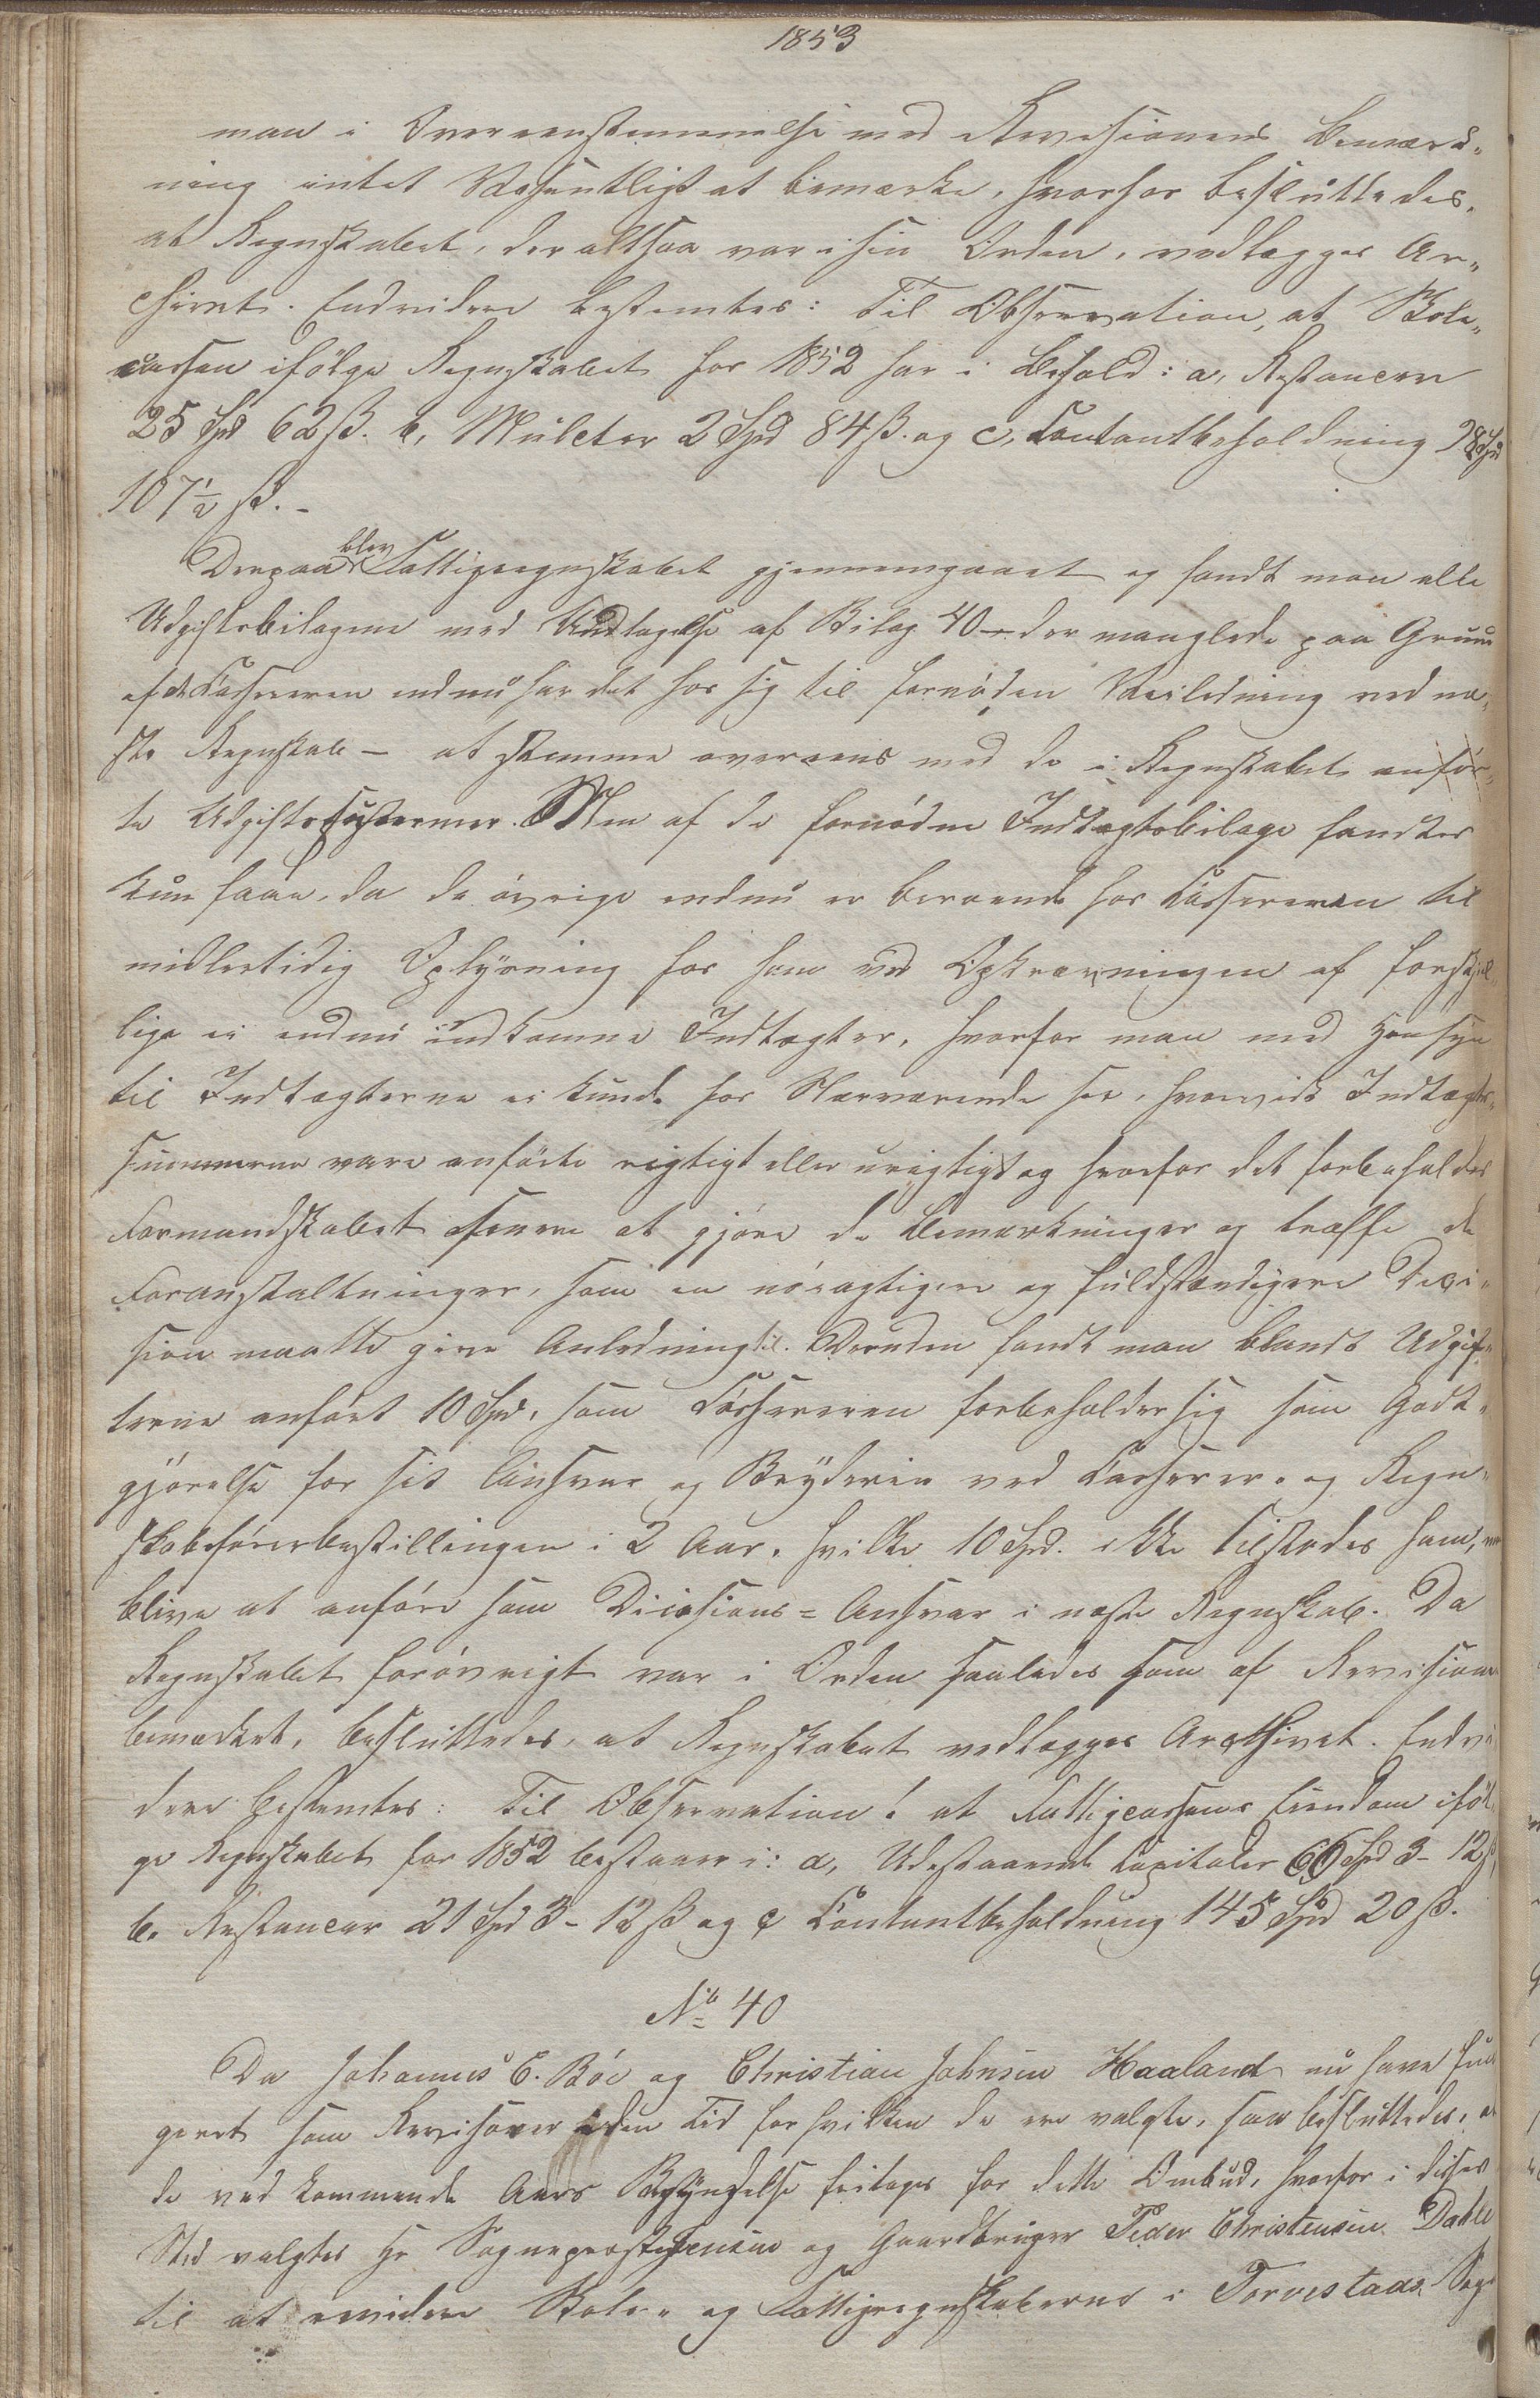 1853
man i Overeensstemmelse med Revisionens Bemærk„
ning intet Væsentligt at bemærke, hvorfor besluttedes,
at Regnskabet, der altsaa var i sin Orden, vedlægges Ar„
chivet. Endvidere bestemtes: Til Observation, at Skole„
cassen ifölge Regnskabet for 1852 har i Behold: a, Restancer
25 Spd 62 ß. b, Mulcter 2 Spd 84 ß. og c, Contantbeholdning 98 Spd
107½ ß. -
Derpaa blev Fattigregnskabet gjennemgaaet og fandt man alle
Udgiftsbilagene med Undtagelse af Bilag 40 - der manglede paa Grund
af at Cassereren endnu har det hos sig til fornöden Veiledning ved næ„
ste Regnskab - at stemme overeens med de i Regnskabet anför„
te Udgiftssummer. Men af de fornödne Indtægtsbilage fandtes
kun faae, da de övrige endnu er beroende hos Cassereren til
midlertidig Oplysning for ham ved Opkrævningen af forskjel„
lige ei endnu indkomne Indtægter, hvorfor man med Hensyn
til Indtægterne ei kunde for Nærværende see, hvorvidt Indtægts„
summerne vare anförte rigtigt eller urigtigt og hvorfor det forbeholdes
Formandskabet senere at gjöre de Bemærkninger og træffe de
Foranstaltninger, som en nöiagtigere og fuldstændigere Deci„
sion maatte give Anledning til. Desuden fandt man blandt Udgif„
terne anfört 10 Spd, som Cassereren forbeholder sig som Godt„
gjörelse for sit Ansvar og Bryderie ved Casserer- og Regn„
skabsförerbestillingen i 2 Aar, hvilke 10 Spd. ikke tilstodes ham, men
blive at anföre som Decisions=Ansvar i næste Regnskab. Da
Regnskabet forövrigt var i Orden saaledes som af Revisionen
bemærket, besluttedes, at Regnskabet vedlægges Archivet. Endvi„
dere bestemtes: Til Observation! at Fattigcassens Eiendom iföl„
ge Regnskabet for 1852 bestaaer i: a, Udestaaende Capitaler 66 Spd 3 - 12 ß,
b. Restancer 21 Spd 3 - 12 ß og c Contantbeholdning 145 Spd 20 ß.
No 40
Da Johannes E. Böe og Christian Johnsen Haaland nu have fun„
geret som Revisorer den Tid for hvilken de ere valgte, saa besluttedes, at
de ved kommende Aars Begyndelse fritages for dette Ombud, hvorfor i disses
Sted valgtes Hr Sogneprest Jensen og Gaardbruger Peder Christensen Dahle
til at revidere Skole- og Fattigregnskaberne i Torvestads Sogn